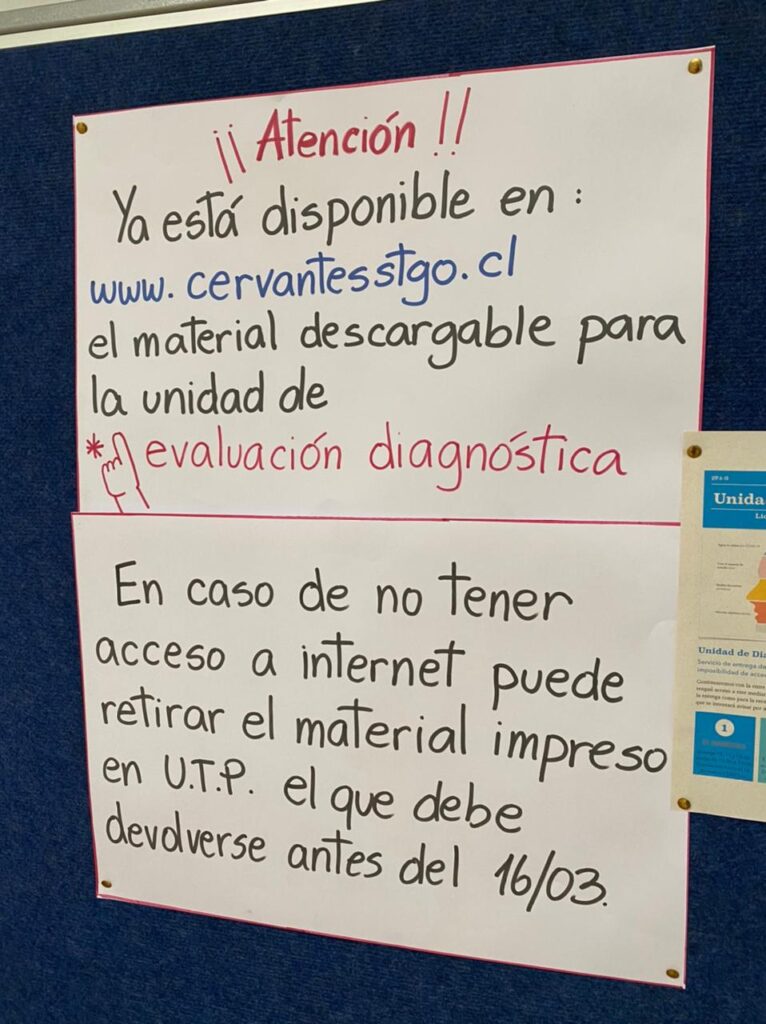 ¡¡ Atención !!
Ya está disponible en :
www.cervantesstgo.cl
el material descargable para
la unidad de
* evaluación diagnóstica
En caso de no tener
acceso a internet puede
retirar el material impreso
en U.T.P. el que debe
devolverse antes del 16/03.
Unidad de
1